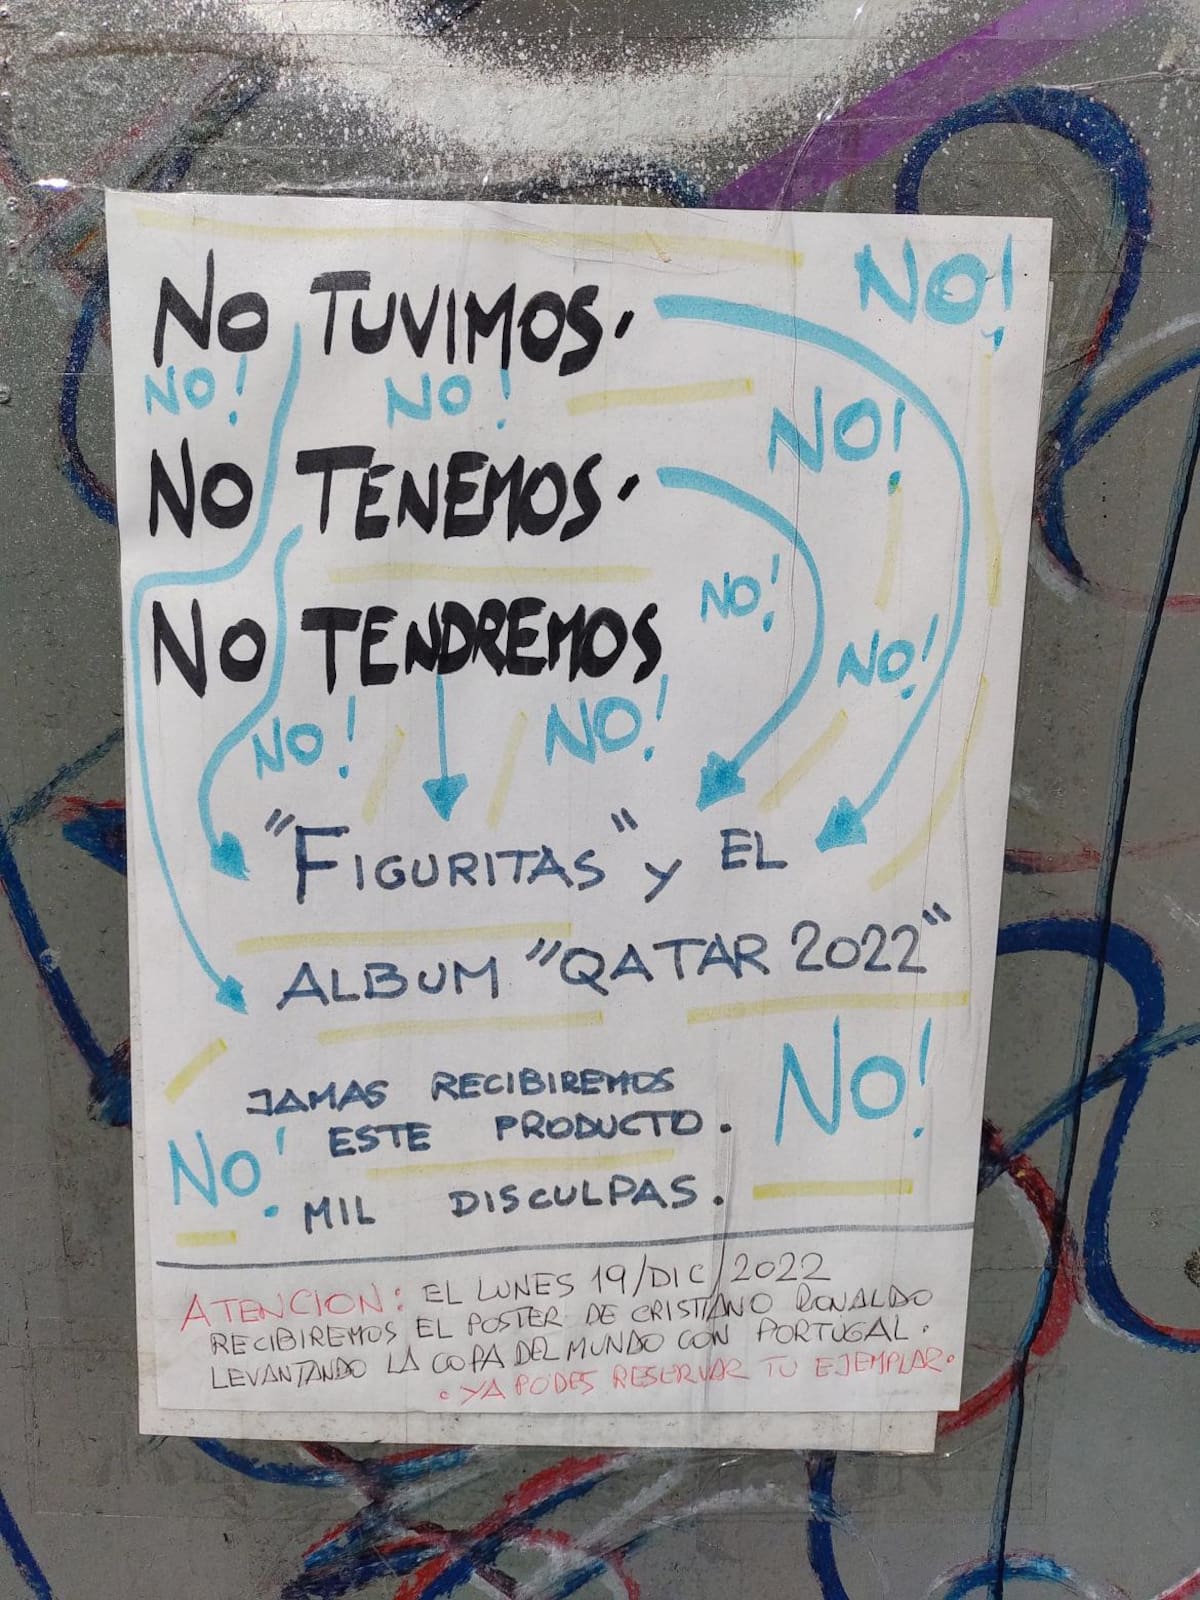 NO TUVIMOS.
NO!
NO! NO!
NO!
NO TENEMOS.
NO!
NO TENDREMOS
NO!
NO! NO!
"FIGURITAS" y EL
ALBUM "QATAR 2022"
JAMAS RECIBIREMOS
ESTE PRODUCTO.
NO!
NO!
MIL DISCULPAS.
ATENCION: EL LUNES 19/DIC/2022
RECIBIREMOS EL POSTER DE CRISTIANO RONALDO
LEVANTANDO LA COPA DEL MUNDO CON PORTUGAL.
. YA PODES RESERVAR TU EJEMPLAR.